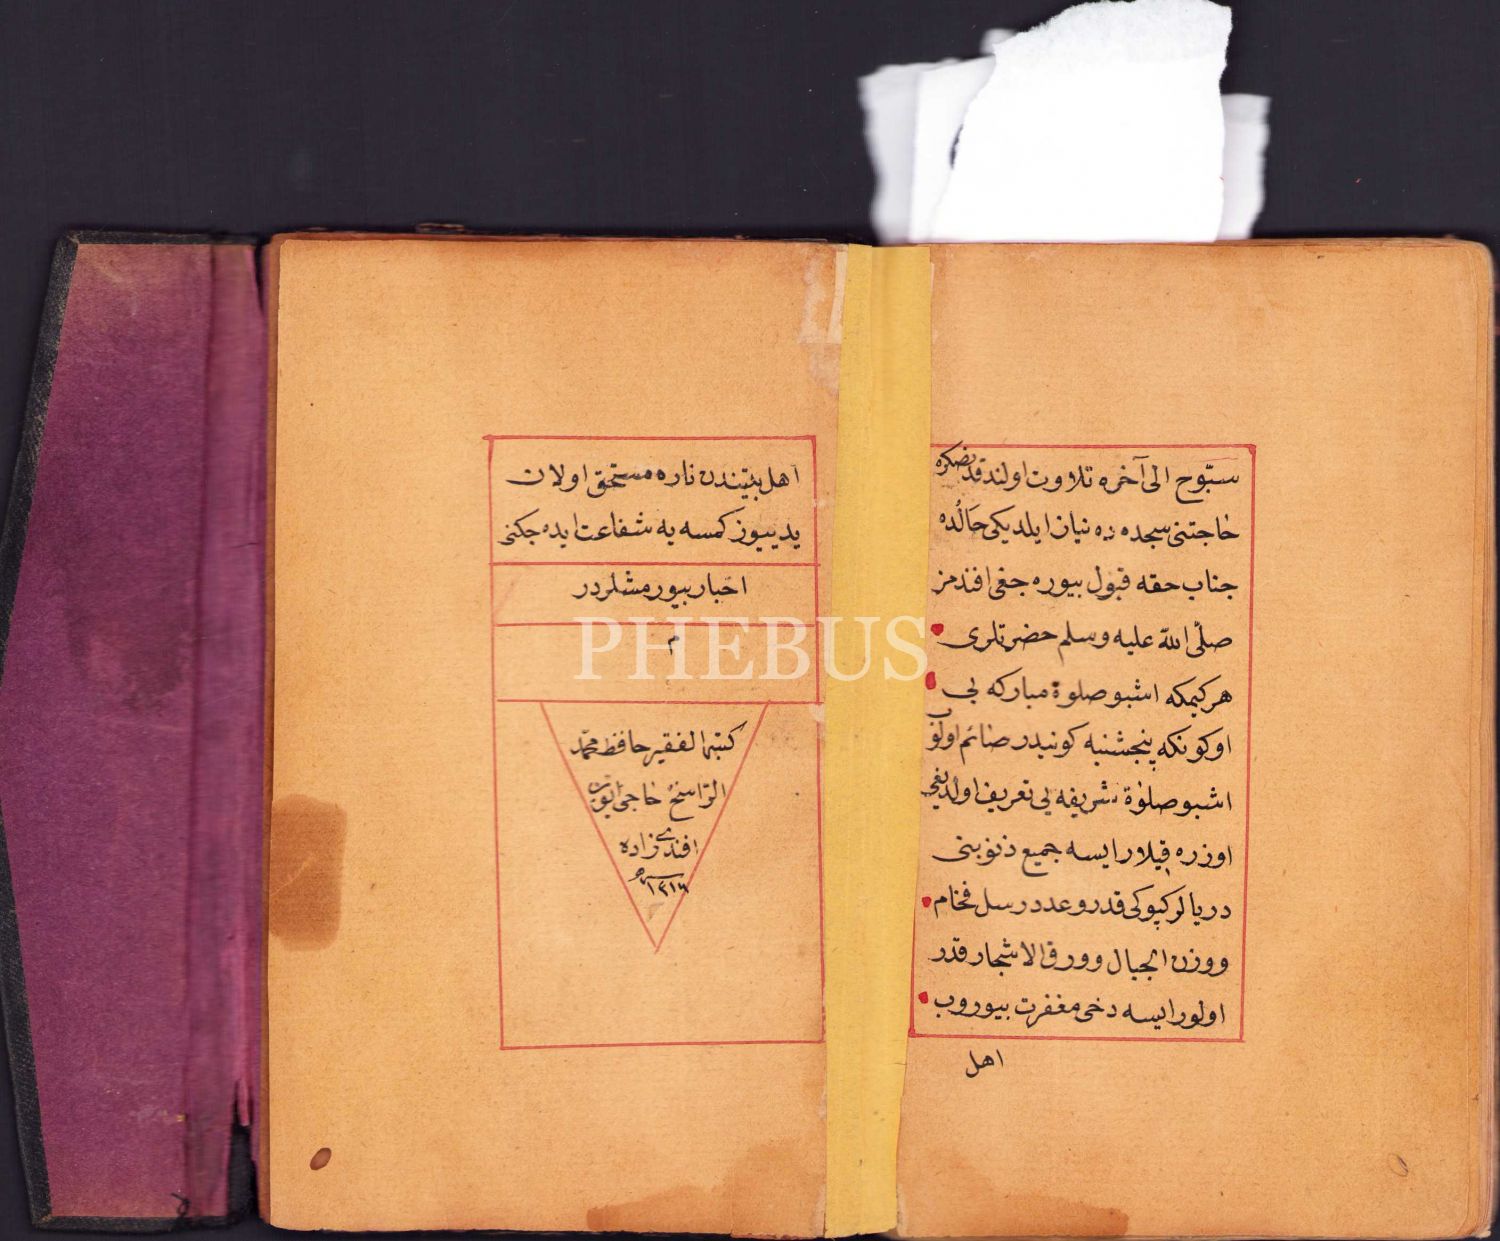 سبّوح الى آخره تلاوت اولندقدنصكره
حاجتنى سجده ده نياز ايلديكى حالده
جناب حقه قبول بيوره جغى افندمز
صلّى الله عليه وسلم حضرتلرى
هركيمكه اشبو صلوة مباركه يى
اوكونكه پنجشنبه كونيدر صائم اولوب
اشبو صلوة شريفه يى تعريف اولديغى
اوزره قيلار ايسه جميع ذنوبنى
دريالر كپوكى قدر وعدد رسل فخام
ووزن الجبال وورق الاشجار قدر
اولور ايسه دخى مغفرت بيوروب
اهل
اهل بيتندن ناره مستحق اولان
يديوز كمسه يه شفاعت ايده جكنى
اخبار بيورمشلردر
م
PHEBUS
كتبه الفقير حافظ محمد
الراسخ حاجى ايوب
افندى زاده
سنه ١٣١٦